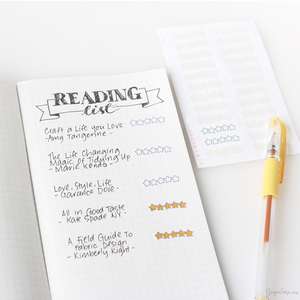 READING
list
Craft a Life you Love
- Amy Tangerine -
The Life Changing
Magic of Tidying Up
- Marie Kondo -
Love. Style. Life
- Garance Dore -
All in Good Taste
- Kate Spade NY -
A Field Guide To
Fabric Design
- Kimberly Kight -